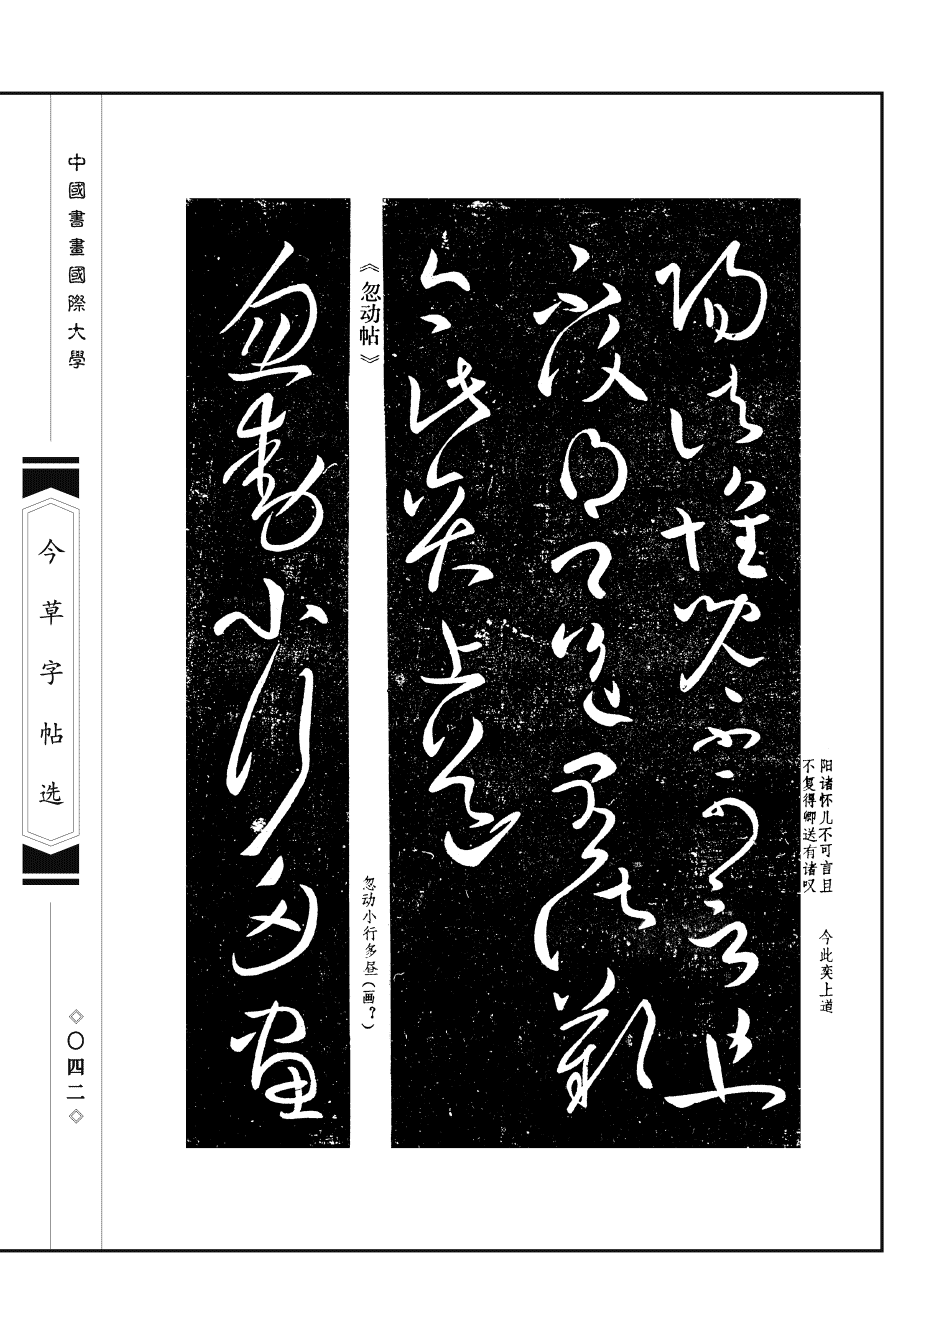 阳诸怀儿不可言且
不复得卿送有诸叹
今此奕上道
《忽动帖》
忽动小行多昼(画？)
忽動小行多晝
中國書畫國際大學
今草字帖选
◇〇四二◇